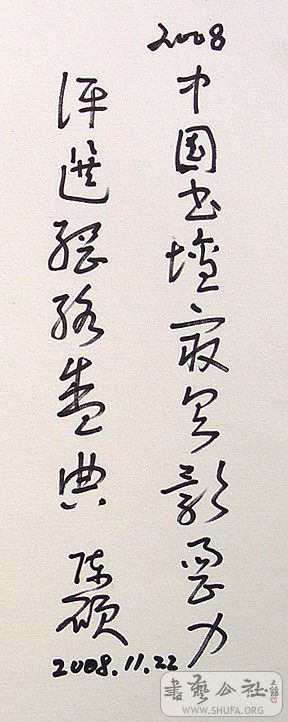 2008
中国书壇最具影响力
评選網络盛典
陈硕
2008.11.22
書藝公社
WWW.SHUFA.ORG